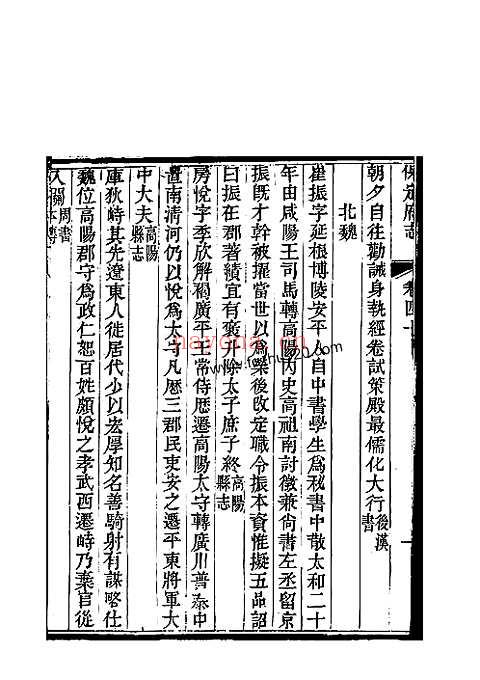 保定府志 卷四十
朝夕自往勸誡身執經卷試策殿最儒化大行後漢書
北魏
崔振字延根博陵安平人自中書學生爲秘書中散太和二十
年由咸陽王司馬轉高陽內史高祖南討徵兼尚書左丞留京
振既才幹被擢當世以爲榮後改定職令振本資惟擬五品詔
曰振在郡著績宜有褒升除太子庶子終高陽縣志
房悅字季欣解褐廣平王常侍歷遷高陽太守轉廣川普泰中
置南清河仍以悅爲太守凡歷三郡民吏安之遷平東將軍大
中大夫高陽縣志
厙狄峙其先遼東人徙居代少以宏厚知名善騎射有謀略仕
魏位高陽郡守爲政仁恕百姓頗悅之孝武西遷峙乃棄官從
入關周書本傳
nayona.cn